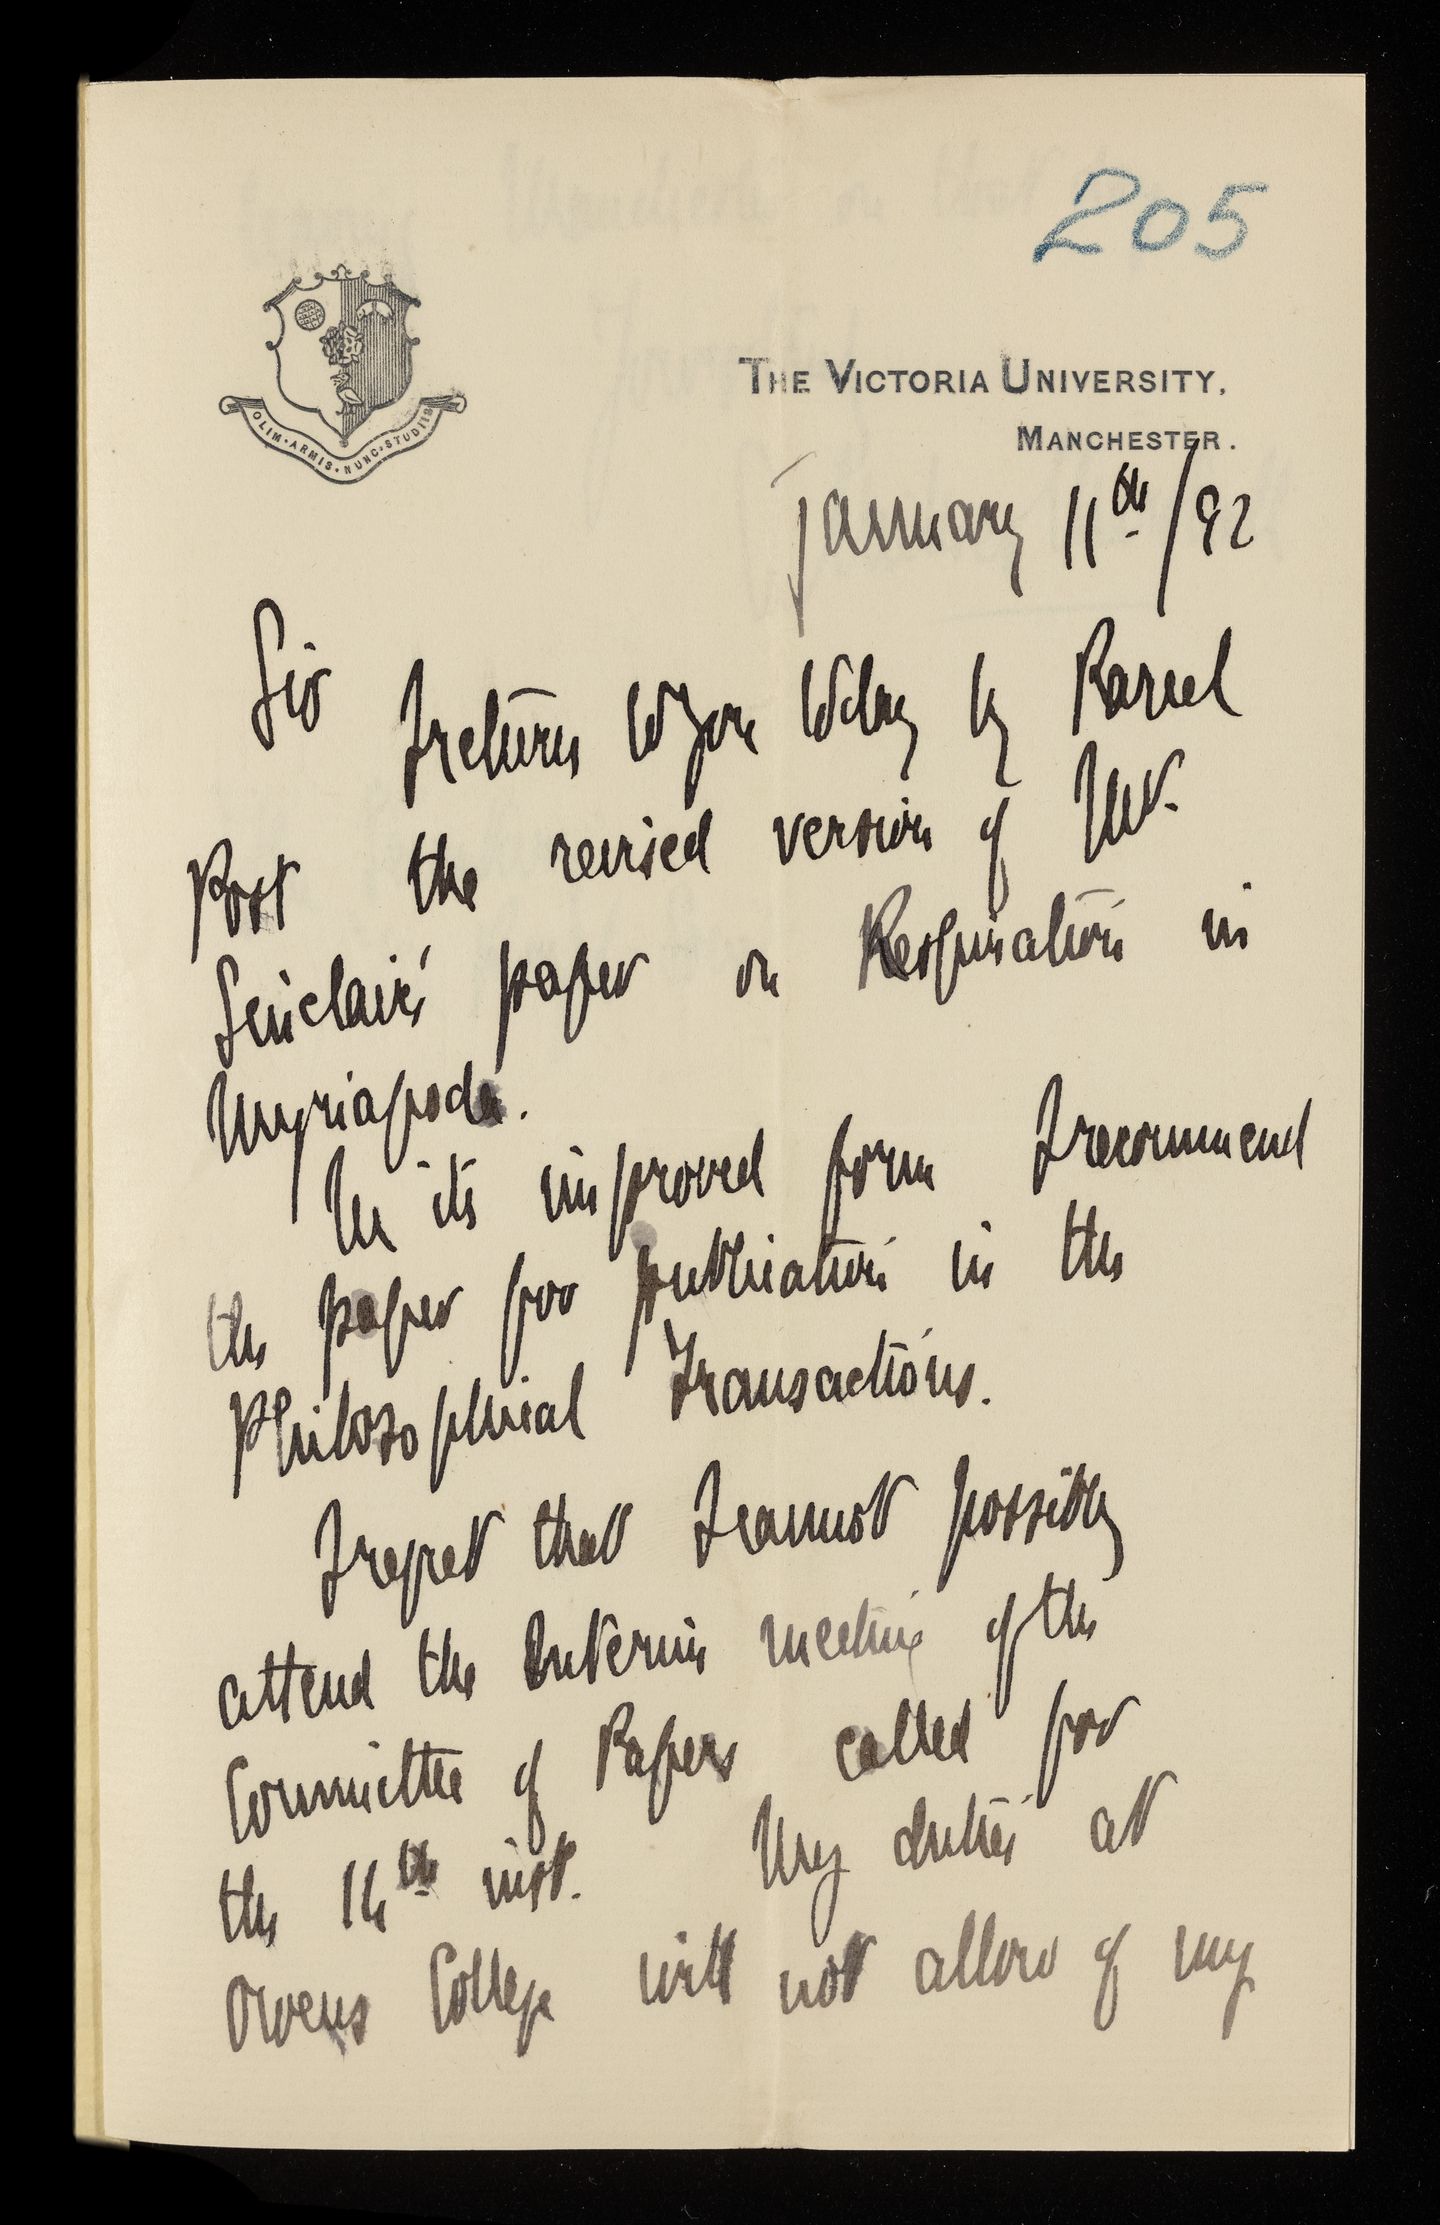 205
OLIM · ARMIS · NUNC · STUDIIS
THE VICTORIA UNIVERSITY,
MANCHESTER.
January 11th/92
Sir
I return to you today by Parcel
Post the revised version of Mr.
Sinclair's paper on Respiration in
Myriapoda.
In its improved form I recommend
the paper for publication in the
Philosophical Transactions.
I regret that I cannot possibly
attend the Interim meeting of the
Committee of Papers called for
the 14th inst. My duties at
Owens College will not allow of my